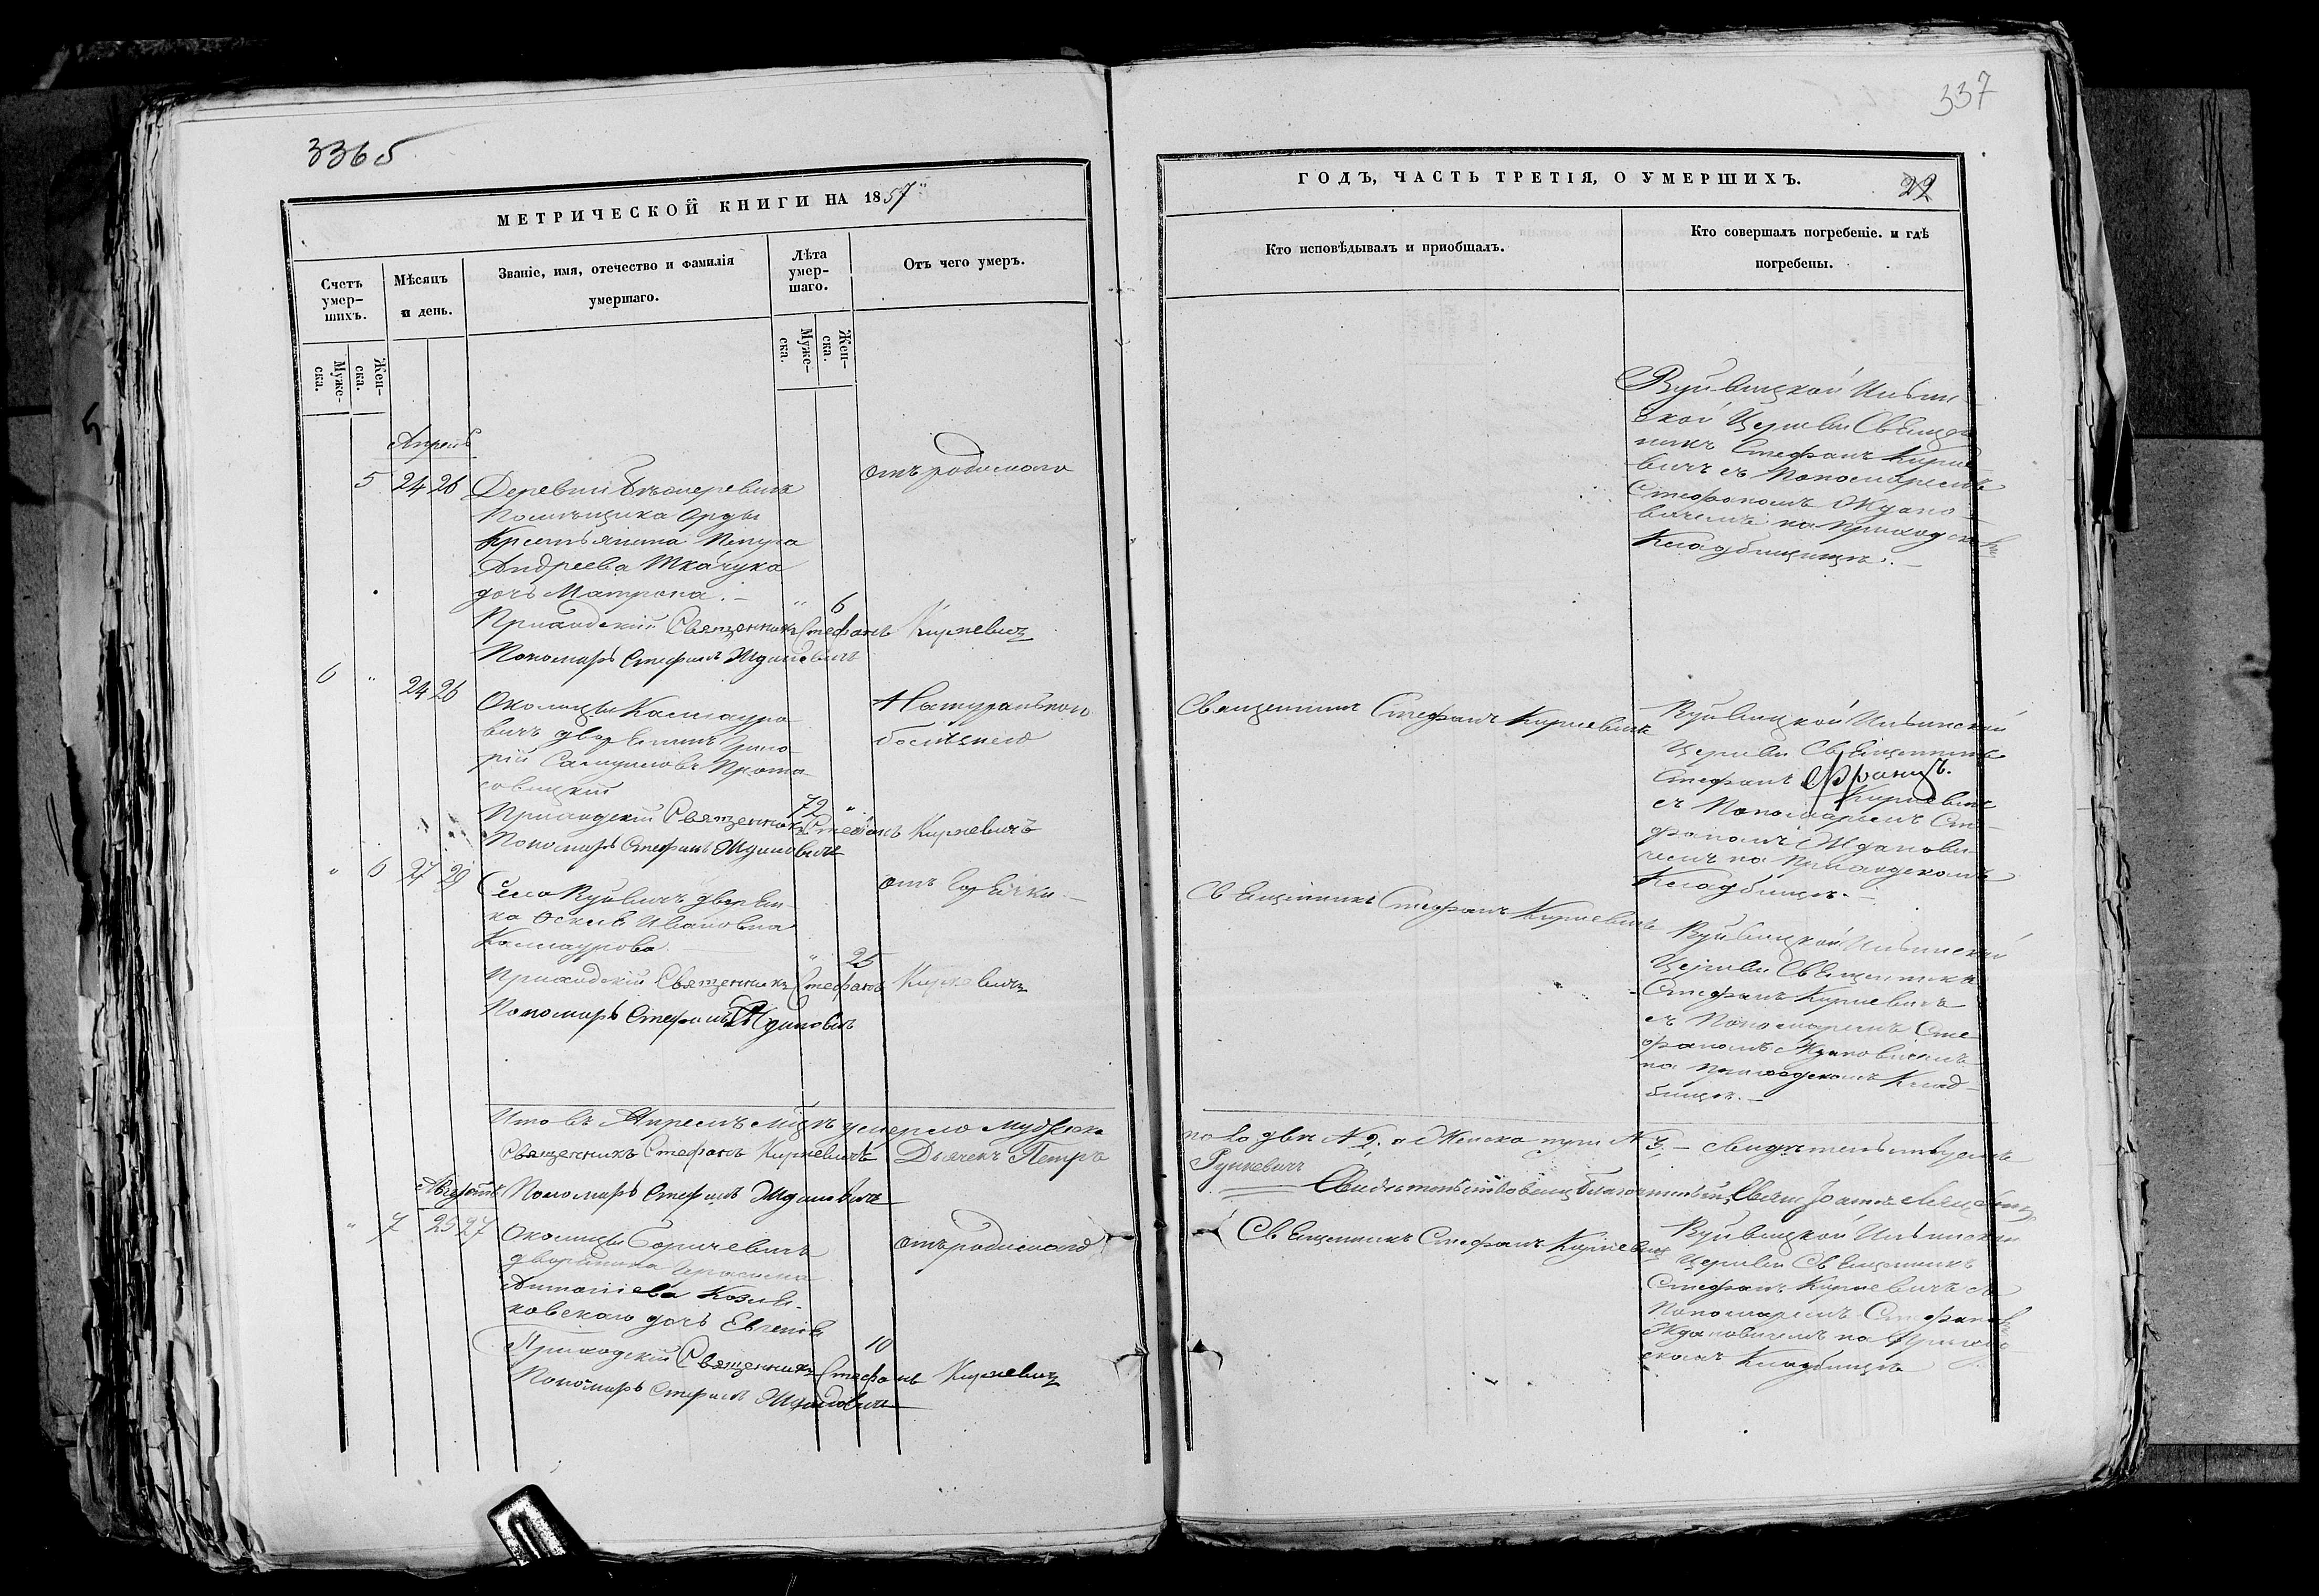 336б
МЕТРИЧЕСКОЙ КНИГИ НА 1857
Счетъ умер-шихъ.
Муже-ска.
Жен-ска.
Мѣсяцъ и день.
Званіе, имя, отечество и фамилія
умершаго.
Лѣта умер-шаго.
Муже-ска.
Жен-ска.
Отъ чего умеръ.
Апрель
5 24 26 Деревни
отъ родимого
Помѣщика Орды
Крестьянина
Андреева Ткачука
дочь Матрона. " 6
Приходскій Священникъ Стефанъ Киркевичъ
Пономарь Стефанъ Ждановичъ
6 " 24 26 Околицы Колмауро-
Натуральною
вичъ дворянинъ Григо-
болѣзнею
рій Самуиловъ Прота-
совицкій 72 "
Приходскій Священникъ Стефанъ Киркевичъ
Пономарь Стефанъ Ждановичъ
" 6 27 29 Села Куйвичъ дворян-
отъ горячки
ка Ивановна
Колмаурова " 25
Приходскій Священникъ Стефанъ Киркевичъ
Пономарь Стефанъ Ждановичъ
Итого въ Апрелѣ умерло мужска
Священникъ Стефанъ Киркевичъ Дьячекъ Петръ
Августъ Пономарь Стефанъ Ждановичъ
" 7 25 27 Околицы Боричевичъ
отъ родимого
дворянина Герасима
Антоніева
ковскаго дочь Евгенія 10
Приходскій Священникъ Стефанъ Киркевичъ
Пономарь Стефанъ Ждановичъ
337
ГОДЪ, ЧАСТЬ ТРЕТІЯ, О УМЕРШИХЪ.
22
Кто исповѣдывалъ и приобщалъ.
Кто совершалъ погребеніе. и гдѣ
погребены.
Куйвицкой Ильин-
ской Церкви Священ-
никъ Стефанъ Кирке-
вичъ съ Пономаремъ
Стефаномъ Ждано-
вичемъ на приходскомъ
Кладбищѣ.
Священникъ Стефанъ Киркевичъ
Куйвицкой Ильинской
Церкви Священникъ
Стефанъ Францъ.
Киркевичъ
съ Пономаремъ Сте-
фаномъ Жданови-
чемъ на Приходскомъ
Кладбищѣ.
Священникъ Стефанъ Киркевичъ
Куйвицкой Ильинской
Церкви Священникъ
Стефанъ Киркевичъ
съ Пономаремъ Сте-
фаномъ Ждановичемъ
на приходскомъ Клад-
бищѣ.
пола два № 2. а Женска три № 3. – свидѣтельствуемъ
Рункевичъ
Свидѣтельствовалъ Благочинный, Свящ Іоаннъ
Священникъ Стефанъ Киркевичъ
Куйвицкой Ильинской
Церкви Священникъ
Стефанъ Киркевичъ съ
Пономаремъ Стефаномъ
Ждановичемъ на Приход-
скомъ Кладбищѣ